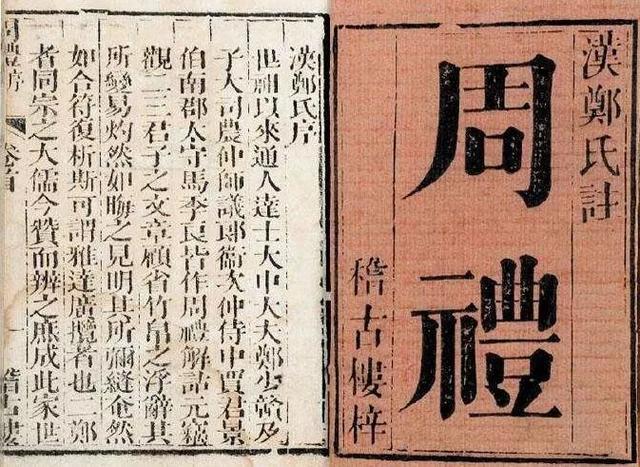 漢鄭氏註
周禮
稽古樓梓
漢鄭氏序
世祖以來通人達士大中大夫鄭少贛及
子大司農仲師議郎衞次仲侍中賈君景
伯南郡太守馬季長皆作周禮解詁元竊
觀二三君子之文章顧省竹帛之浮辭其
所變易灼然如晦之見明其所彌縫奄然
如合符復析斯可謂雅達廣攬者也二鄭
者同宗之大儒今贊而辨之庶成此家世
周禮序 卷首 稽古樓